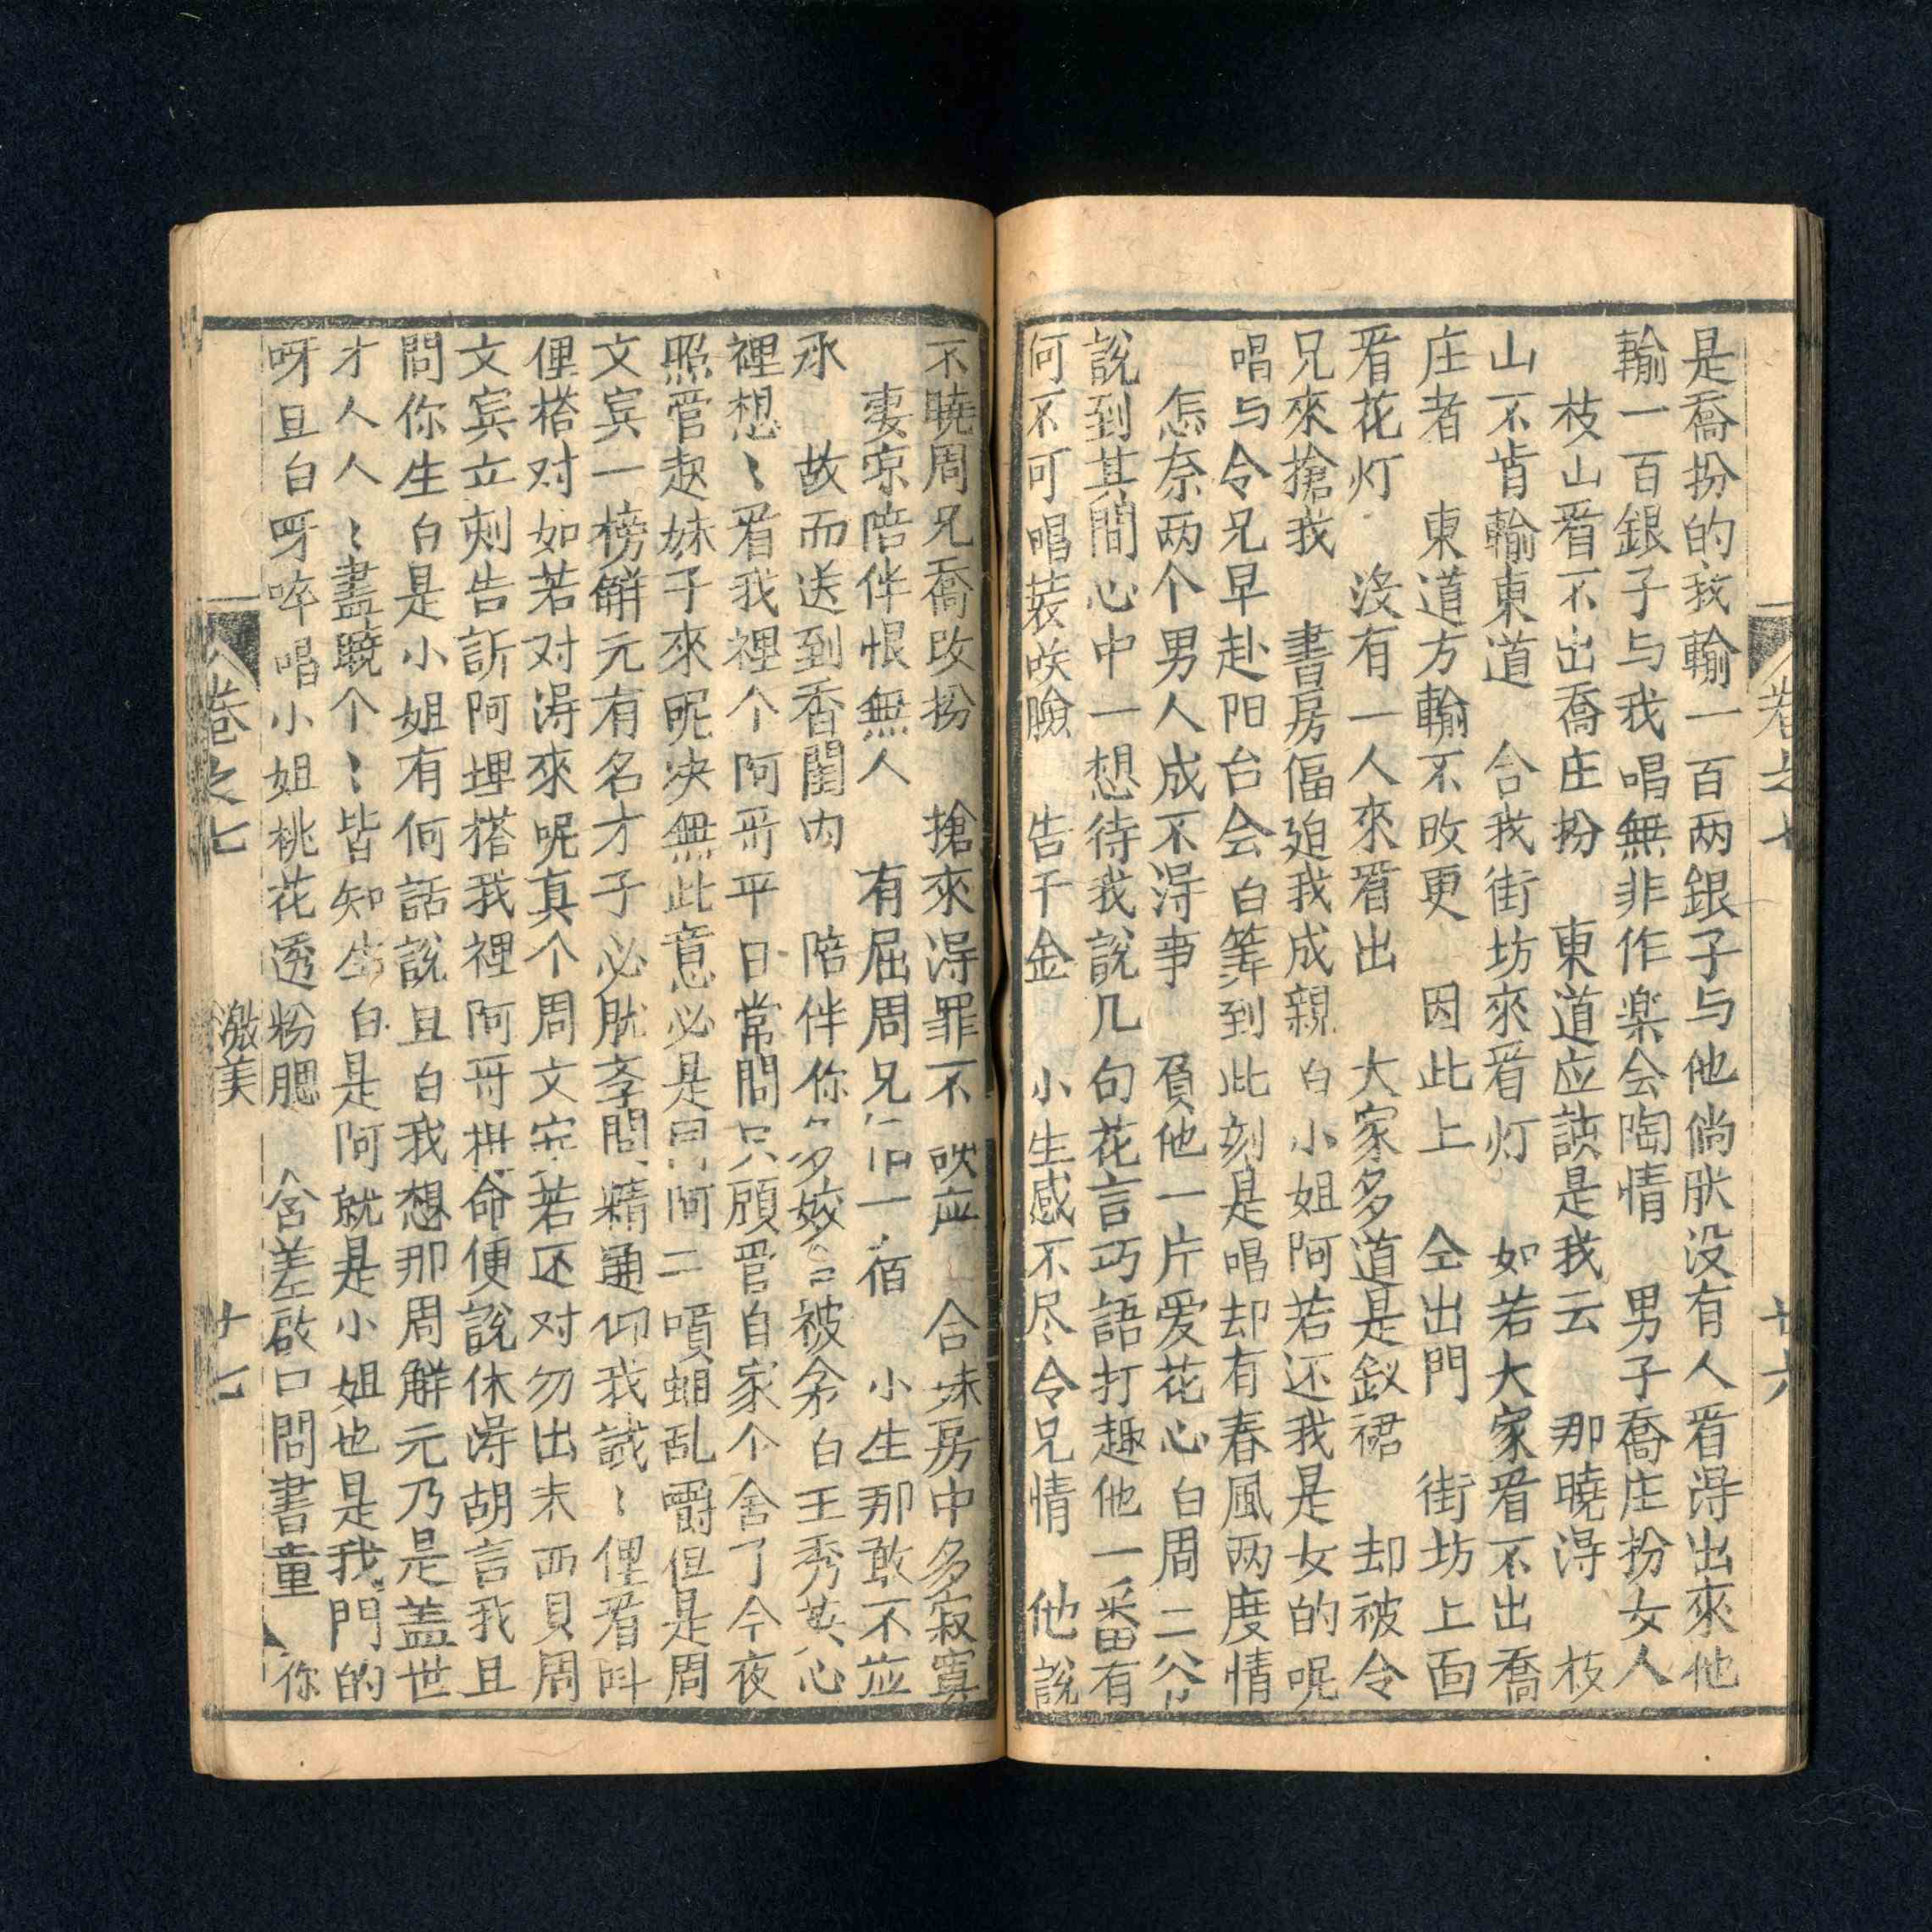 是喬扮的我輸一百两銀子与他倘肰没有人㸔淂出來他
輸一百銀子与我唱無非作楽会陶情 男子喬庄扮女人
枝山㸔不出喬庄扮 東道应該是我云 那曉淂 枝
山不肯輸東道 合我街坊來㸔灯 如若大家㸔不出喬
庄者 東道方輸不改更 因此上 仝出門 街坊上面
㸔花灯 沒有一人來㸔出 大家多道是釵裙 却被令
兄來搶我 書房偪迫我成親白小姐阿若还我是女的呢
唱与令兄早赴阳台会白筭到此刻是唱却有春風两度情
怎奈两个男人成不淂事 負他一片爱花心白周二爷
說到其間心中一想待我說几句花言巧語打趣他一番有
何不可唱裝咲臉 告千金 小生感不尽令兄情 他說
卷之七 廿六
不曉周兄喬改扮 搶來淂罪不 应 合妹房中多寂寞
妻凉陪伴恨無人 有屈周兄 一宿 小生那敢不应
承 故而送到香閨内 陪伴你 多姣 被衾白王秀英心
裡想〻㸔我裡个阿哥平日常問只顧官自家个舍了今夜
照管起妹子來呢决無此意必是 阿二嘖蛆乱嚼但是周
文宾一榜觧元有名才子必肰斈問精通仰我試〻俚㸔呌
俚搭对如若对淂來呢真个周文宾若还对勿出末西貝周
文宾立刻告訴阿埋搭我裡阿哥拼命便說休淂胡言我且
問你生白是小姐有何話說且白我想那周觧元乃是盖世
才人人〻盡曉个〻皆知生白是阿就是小姐也是我門的
呀旦白呀啐唱小姐桃花透粉腮 含羞啟口問書童 你
卷之七 激美 廿七